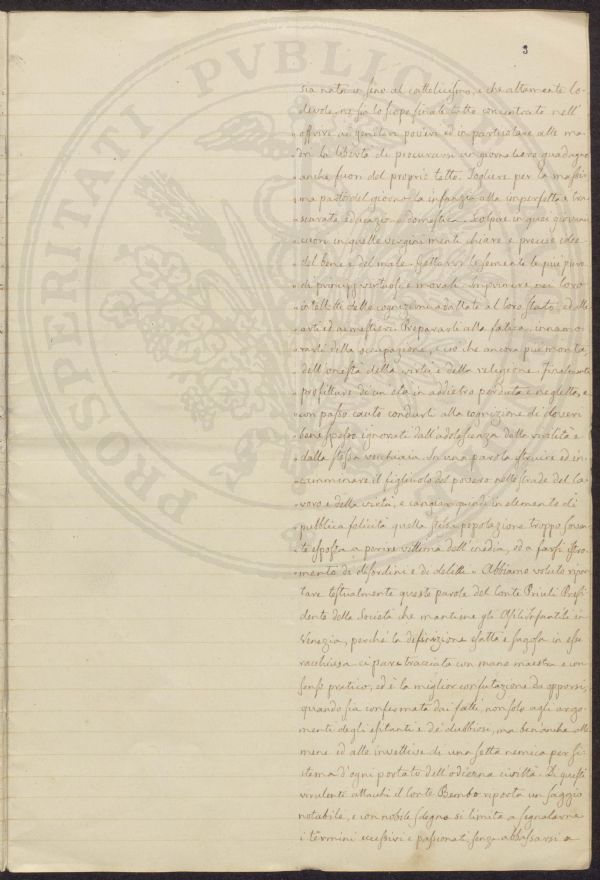 3
sia nata in seno al cattolicismo, e che altamente lo-
devole ne sia lo scopo finale tutto concentrato nell'
„ offrire ai genitori poveri ed in particolare alle ma-
„ dri la libertà di procurarsi un giornaliero guadagno
„ anche fuori del proprio tetto. Togliere per la massi-
„ ma parte del giorno la infanzia alla imperfetta e tra-
„ scurata educazione domestica. Scolpire in quei giovani
„ cuori in quelle vergini menti chiare e precise idee
„ del bene e del male. Gettarvi le semente le più pure
„ di principj virtuosi e morali. Imprimere nei loro
„ intelletti delle cognizioni adattate al loro stato, ed alle
„ arti ed ai mestieri. Prepararli alla fatica, innamo-
„ rarli della occupazione, e ciò che ancora più monta
„ dell'onestà della virtù e della religione. Finalmente
„ profittare di un'età in addietro perduta e negletta, e
„ con passo cauto condurli alla cognizione di doveri
„ bene spesso ignorati dall'adolescenza dalla virilità e
„ dalla stessa vecchiaia. In una parola istruire ed in-
„ camminare il figliuolo del povero nelle strade del la-
„ voro e della virtù, e cangiar quindi in elemento di
„ pubblica felicità quella stessa popolazione troppo soven-
„ te esposta a perire vittima dell'inedia, od a farsi stro-
„ mento di disordini e di delitti „ Abbiamo voluto ripor-
tare testualmente queste parole del Conte Priuli Presi-
dente della Società che mantiene gli Asili Infantili in
Venezia, perchè la descrizione esatta e sagosa in esse
racchiusa ci pare tracciata con mano maestra e con
senso pratico, ed è la miglior confutazione da opporsi,
quando sia confermata dai fatti, non solo agli argo-
menti degli esitanti e de' dubbiosi, ma ben anche alle
mene ed alle invettive di una setta nemica per si-
stema d'ogni portato dell'odierna civiltà. Di questi
virulenti attacchi il Conte Bembo riporta un saggio
notabile, e con nobile sdegno si limita a segnalarne
i termini eccessivi e passionati, senza abbassarsi a
PROSPERITATI PVBLIC